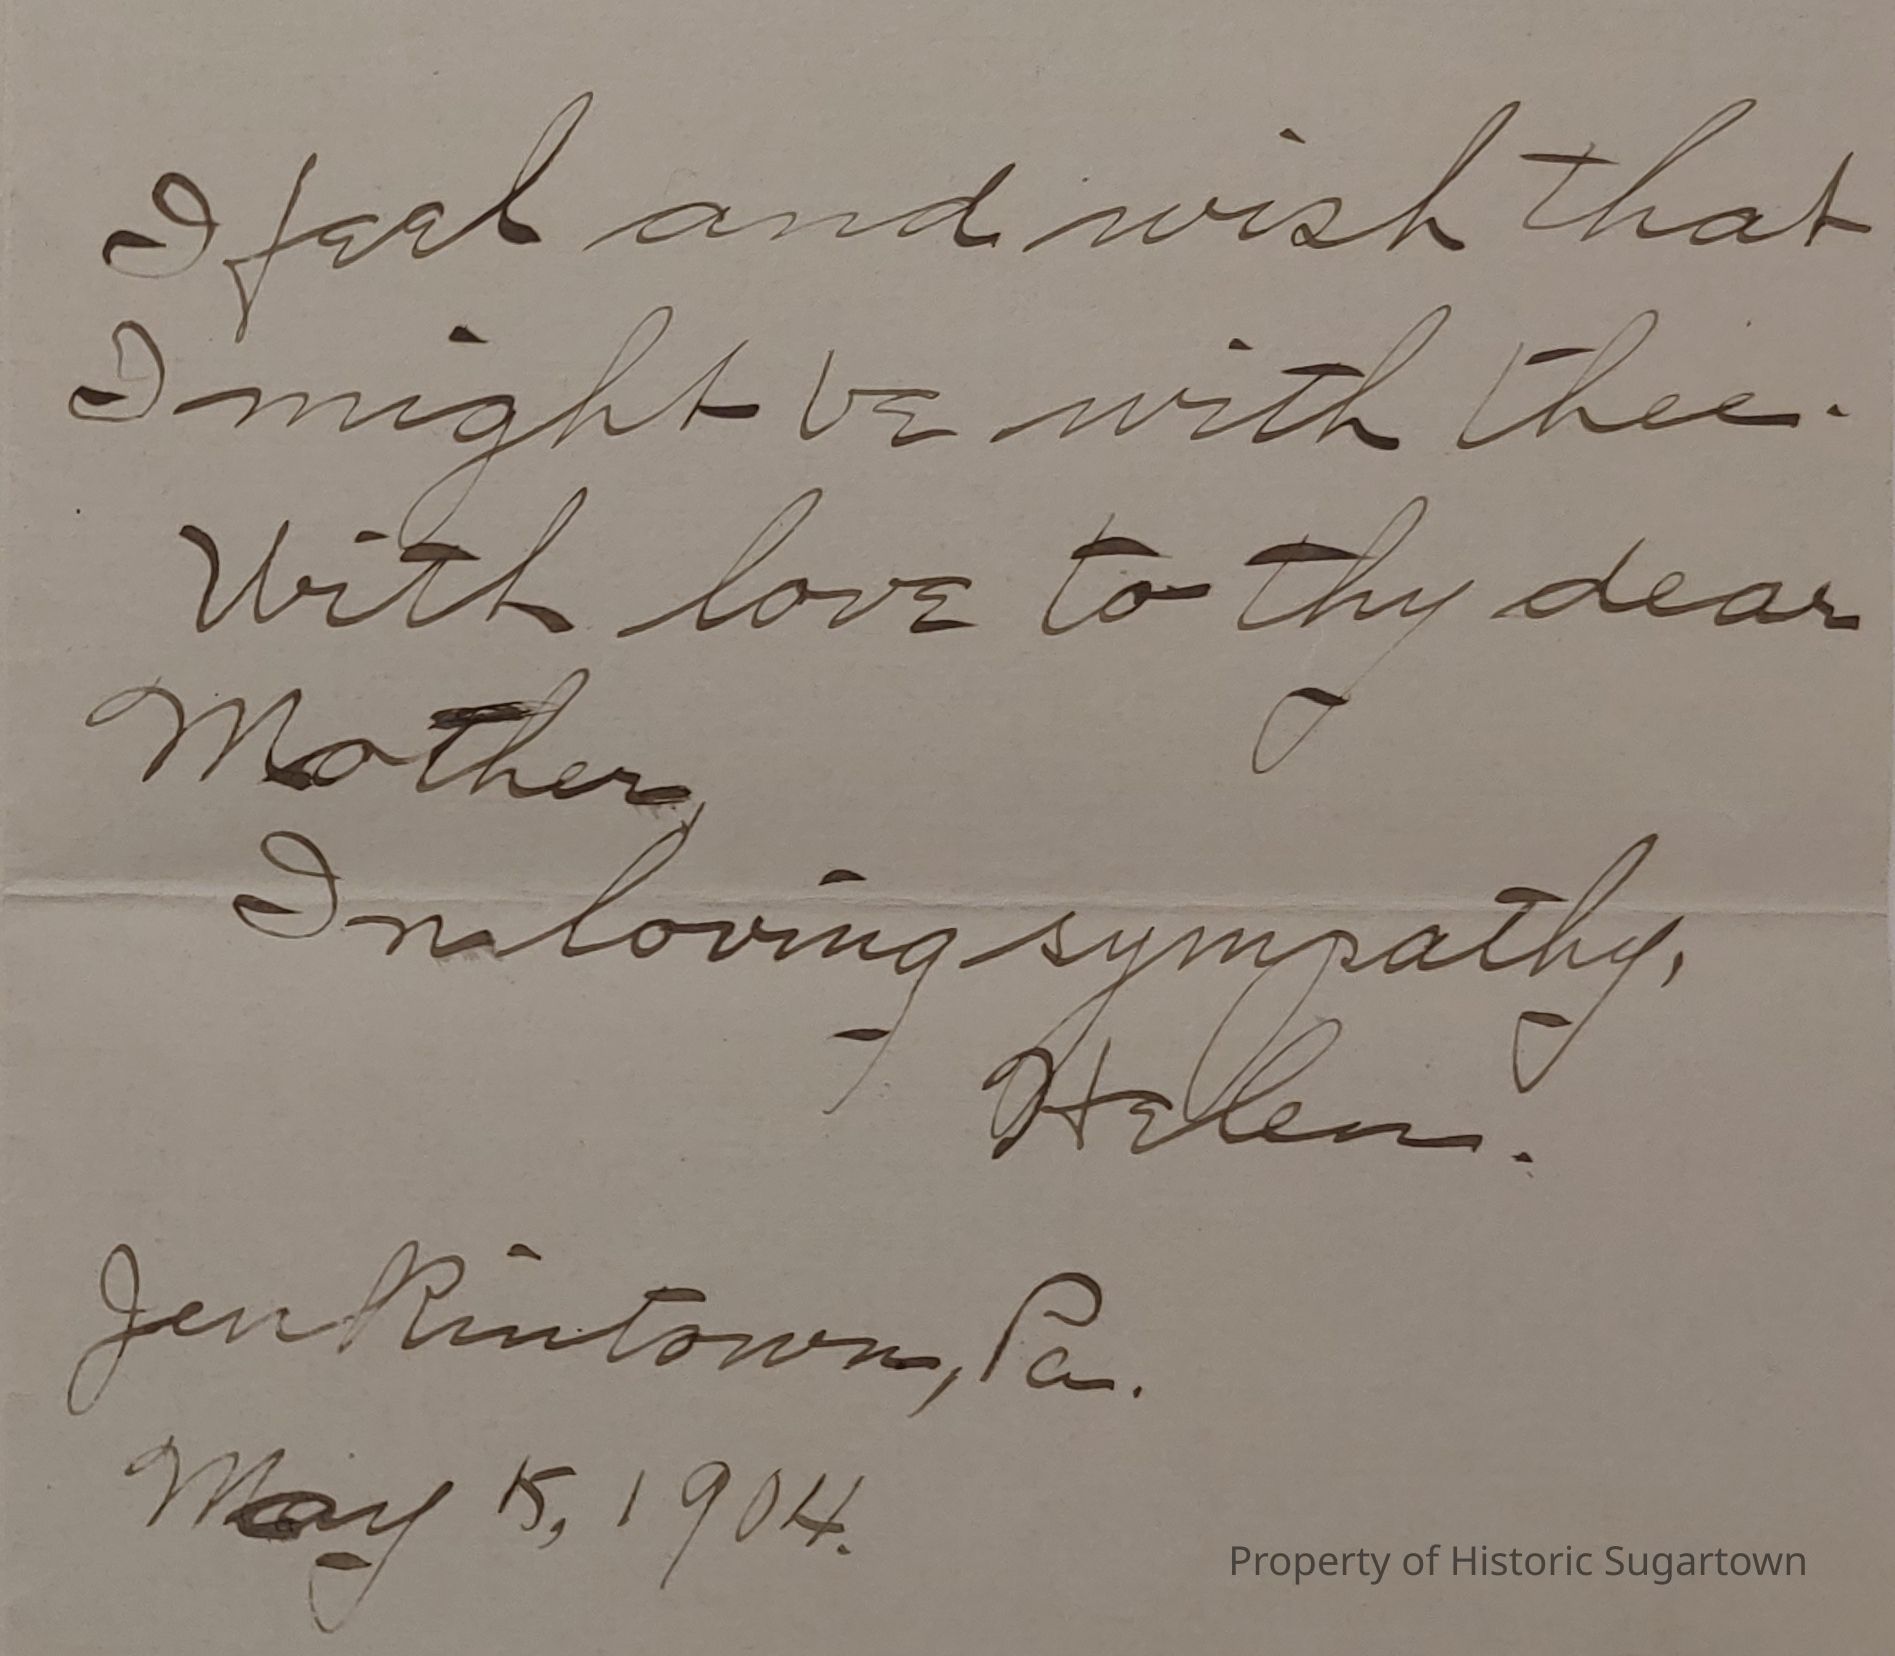 I feel and wish that
I might be with thee.
With love to thy dear
Mother,
In loving sympathy,
Helen.
Jenkintown, Pa.
May 15, 1904.
Property of Historic Sugartown